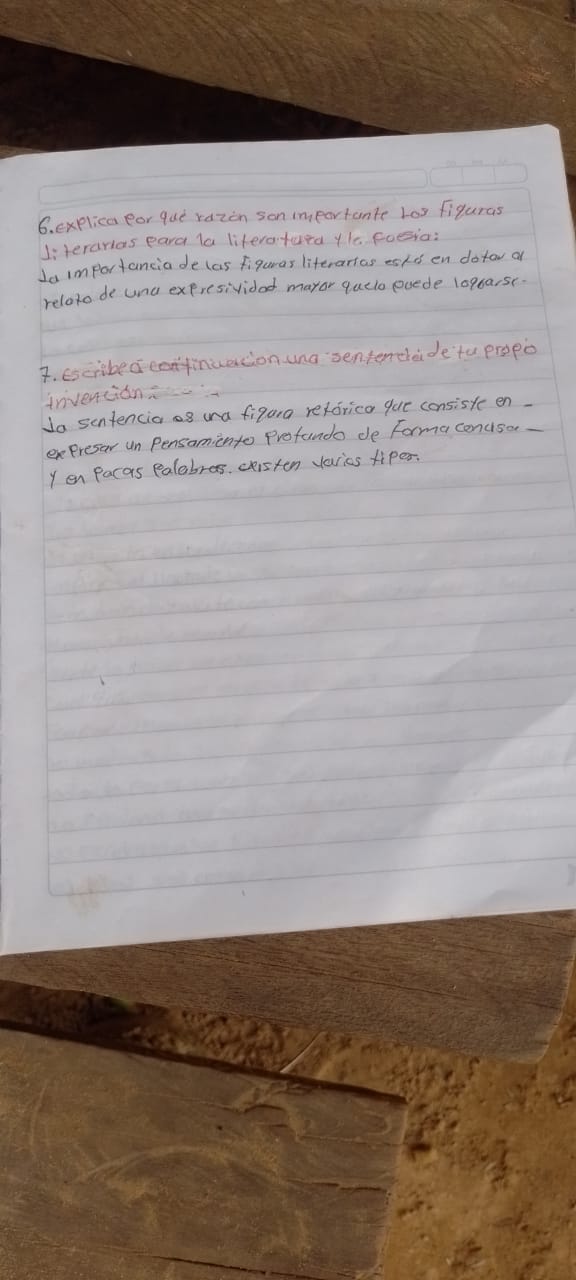 6. explica por qué razón son importante los figuras
literarias para la literatura y la poesia:
la importancia de las figuras literarias está en dotar al
relato de una expresividad mayor que lo puede lograrse.
7. escribe a continuación una sentencia de tu propio
invención:
la sentencia es una figura retórica que consiste en -
expresar un pensamiento profundo de forma concisa -
y en pocas palabras. existen varios tipos.